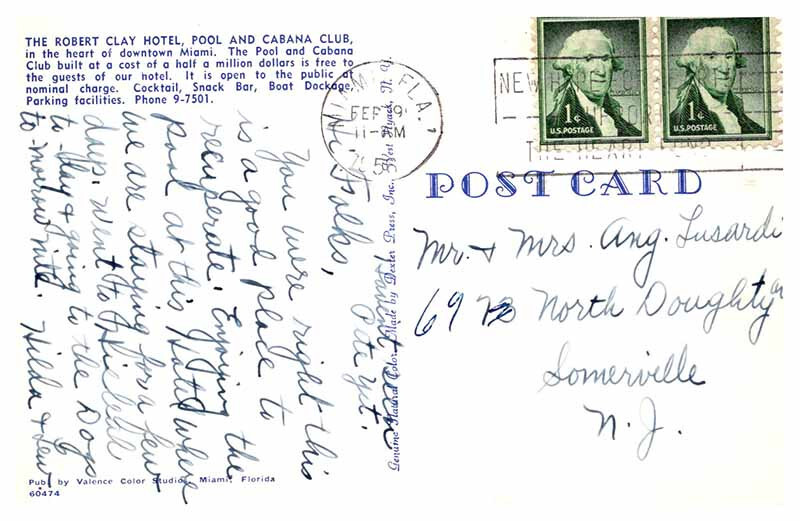 THE ROBERT CLAY HOTEL, POOL AND CABANA CLUB,
in the heart of downtown Miami. The Pool and Cabana
Club built at a cost of a half a million dollars is free to
the guests of our hotel. It is open to the public at
nominal charge. Cocktail, Snack Bar, Boat Dockage,
Parking facilities. Phone 9-7501.
MIAMI, FLA.
FEB 9
11-AM
1¢
U.S. POSTAGE
1¢
U.S. POSTAGE
NEW HOPE
THE HEART FUND
POST CARD
Mr. & Mrs. Ang. Lusardi
69 North Doughty
Somerville
N. J.
Hi Folks,
You were right this
is a good place to
recuperate. Enjoying the
pool at this Hotel where
we are staying for a few
days. Went to Hialeah
to-day & going to the Dogs
to-morrow nite. Hilda & Lew
Haven't seen
Pete yet.
Genuine Natural Color Made by Dexter Press, Inc., West Nyack, N. Y.
Pub. by Valence Color Studios, Miami, Florida
60474